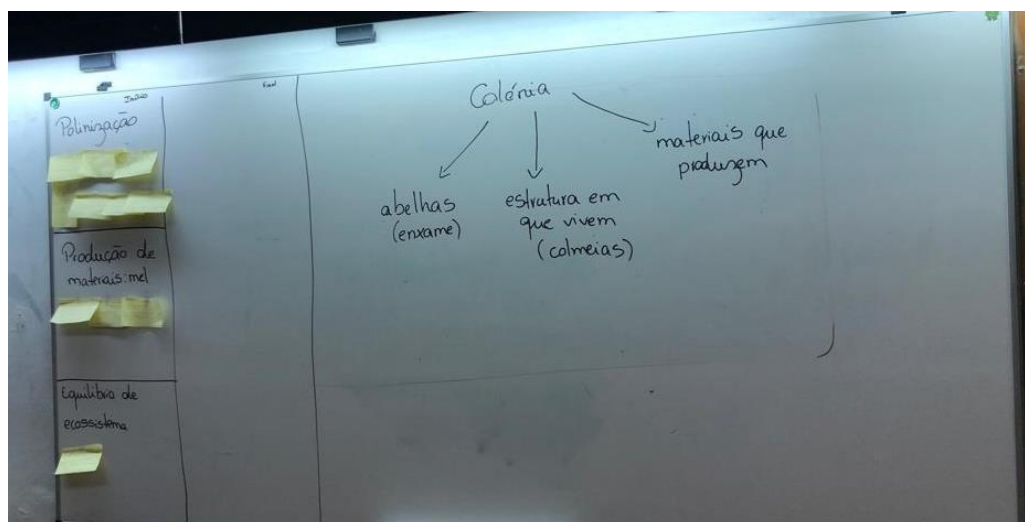 Início
Final
Polinização
Produção de
materiais: mel
Equilíbrio de
ecossistema
Colónia
abelhas
(enxame)
estrutura em
que vivem
(colmeias)
materiais que
produzem